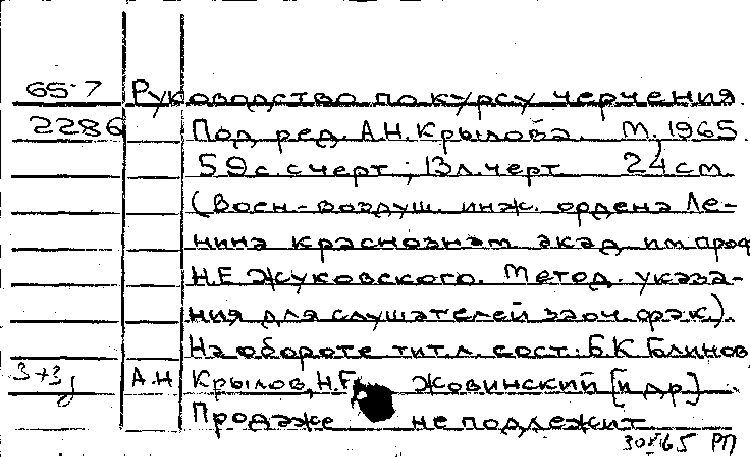 65-7 Руководство по курсу черчения.
2286 Под ред. А.Н. Крылова. М, 1965
59 с. с черт; 13 л. черт 24 см
(Воен.-воздуш. инж. ордена Ле-
нина краснознам акад им проф
Н.Е Жуковского. Метод. указа-
ния для слушателей заоч. фак.).
На обороте тит. л. сост: Б.К Блинов,
3+3 А.Н Крылов, Н.Г. Жовинский [и др]
Продаже не подлежит
65 РП